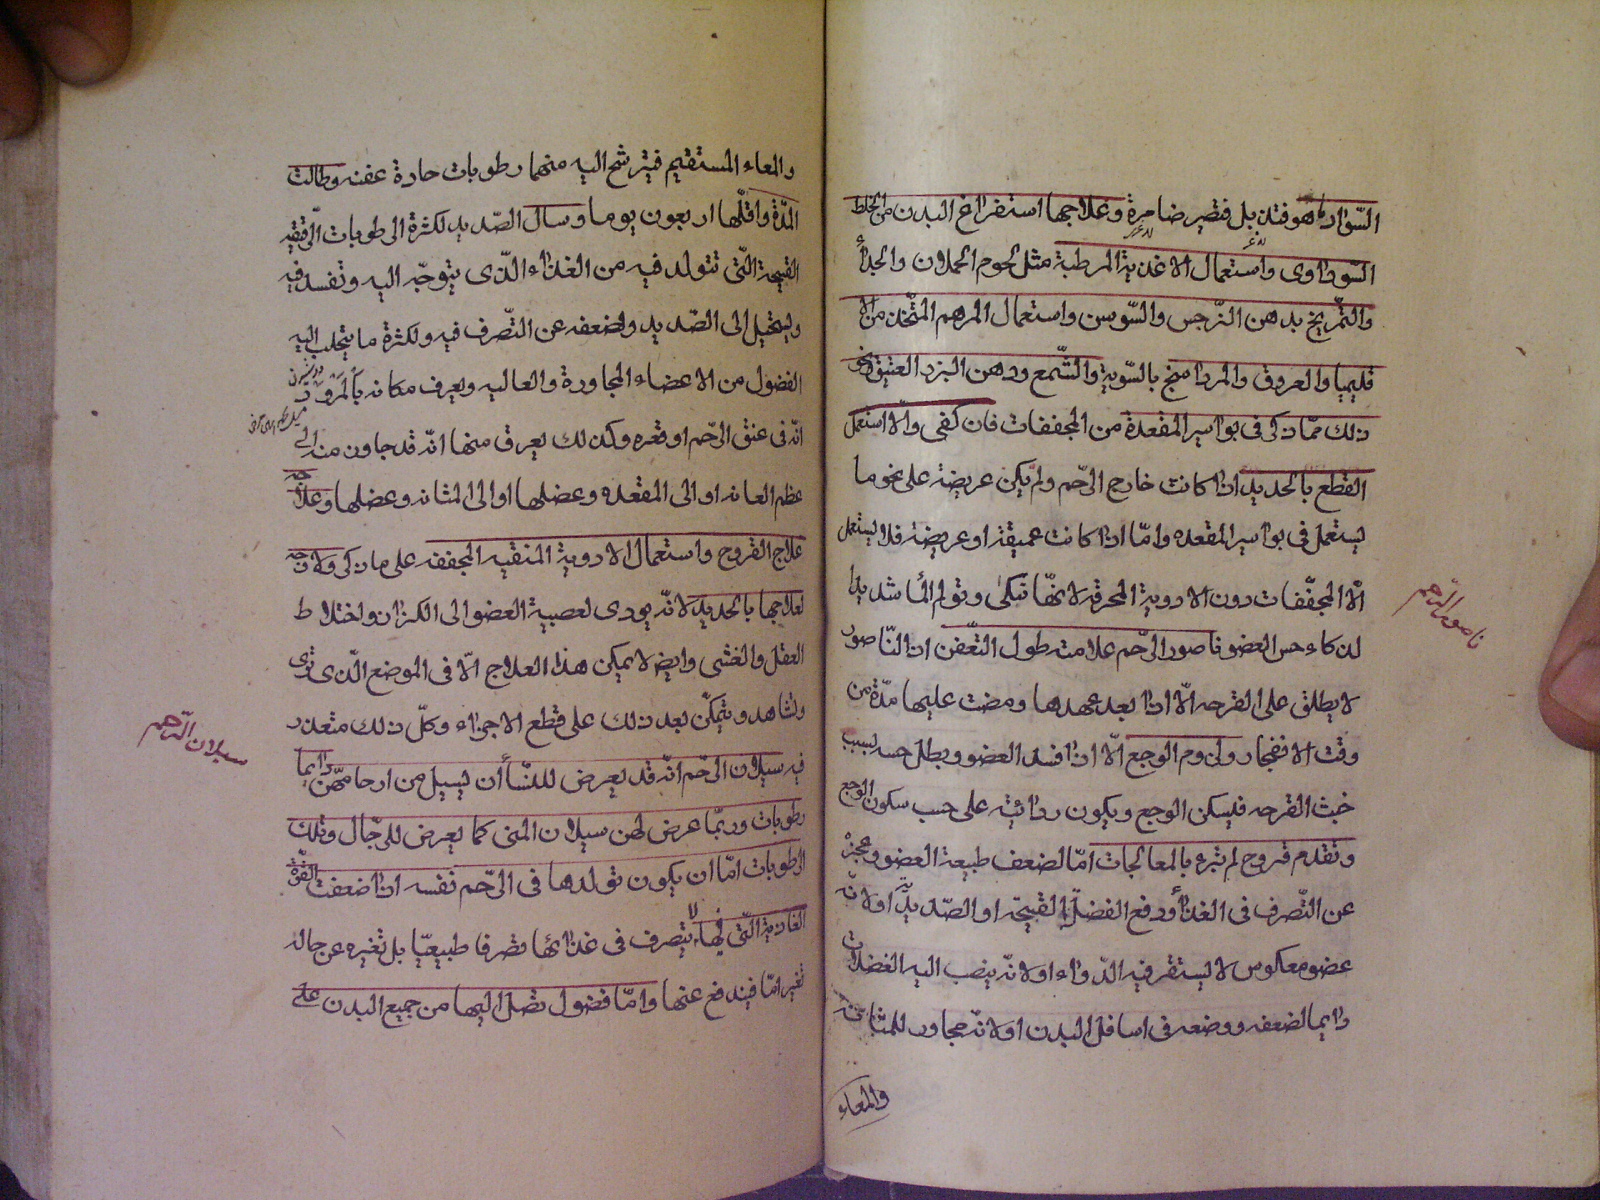 السّوداء هو فتذبل فتصير ضامرة وعلاجها استفراغ البدن من الخلط
السّوداوى واستعمال الاغذية المرطبة مثل لحوم الحملان والجدأ
والتّمريخ بدهن النّرجس والسّوسن واستعمال المرهم المتّخذ من الا
قليميا والعروق والمرداسنج بالسّوية والشّمع ودهن البزر العتيق ونحو
ذلك ممّا ذكر فى بواسير المقعدة من المجففات فان كفى والّا استعمل
القطع بالحديد اذا كانت خارج الرّحم ولم يكن عريضة على نحو ما
يستعمل فى بواسير المقعده وامّا اذا كانت عميقة او عريضة فلا يستعمل
الّا المجفّفات دون الادوية المحرقة لانّها تنكى وتولم الماً شديدا
لذكاء حس العضو ناصور الرّحم علامته طول التّعفن اذ النّاصور
لا يطلق على القرحه الّا اذا بعد عهدها ومضت عليها مدّة من
وقت الانفجار ولزوم الوجع الّا اذا فسد العضو وبطل حسه لسبب
خبث القرحه فليسكن الوجع ويكون ردائته على حسب سكون الوجع
وتقدم قروح لم تبرء بالمعالجات امّا لضعف طبيعة العضو وعجزه
عن التّصرف فى الغذأ ودفع الفضلة القيحيّة او الصّديديّة او لانّه
عضو معكوس لا يستقر فيه الدّواء او لانّه ينصب اليه الفضلات
دايما لضعفه ووضعه فى اسافل البدن او لانّه مجاور للمثانه
والمعاء
ناصور الرّحم
والمعاء المستقيم فيترشح اليه منهما رطوبات حادة عفنه وطالت
المدّة واقلّها اربعون يوما وسال الصّديد لكثرة الرطوبات الرّقيقه
القيحية الّتى تتولد فيه من الغذاء الّذى يتوجّه اليه وتفسد فيه
ويستحيل الى الصّديد ولضعفه عن التّصرف فيه ولكثرة ما يتجلب اليه
الفضول من الاعضاء المجاورة والعاليه ويعرف مكانه بالمرود
انّه فى عنق الرّحم او قعره وكذلك يعرف منها انّه قد جاوز منه الى
عظم العانه او الى المقعده وعضلها او الى المثانه وعضلها وعلاجه
علاج القروح واستعمال الادوية المنقيه المجففه على ما ذكر ولا وجه
لعلاجها بالحديد لانّه يودى لعصبية العضو الى الكزاز واختلاط
العقل والغشى وايضا لا يمكن هذا العلاج الّا فى الموضع الّذى ترى
وتشاهد ويتمكّن بعد ذلك على قطع الاجزاء وكلّ ذلك متعذر
فيه سيلان الرّحم انّه قد يعرض للنّسأ أن يسيل من ارحامهّن دايما
رطوبات وربّما عرض لهن سيلان المنى كما يعرض للرّجال وتلك
الرطوبات امّا ان يكون تولدها فى الرّحم نفسه اذا ضعفت القوّة
الغاذية الّتى فيها لا يتصرف فى غذائها تصرفا طبيعيّا بل تغيره عن حاله
تغيرا مّا فيندفع عنها وامّا فضول تصل اليها من جميع البدن على
سيلان الرّحم